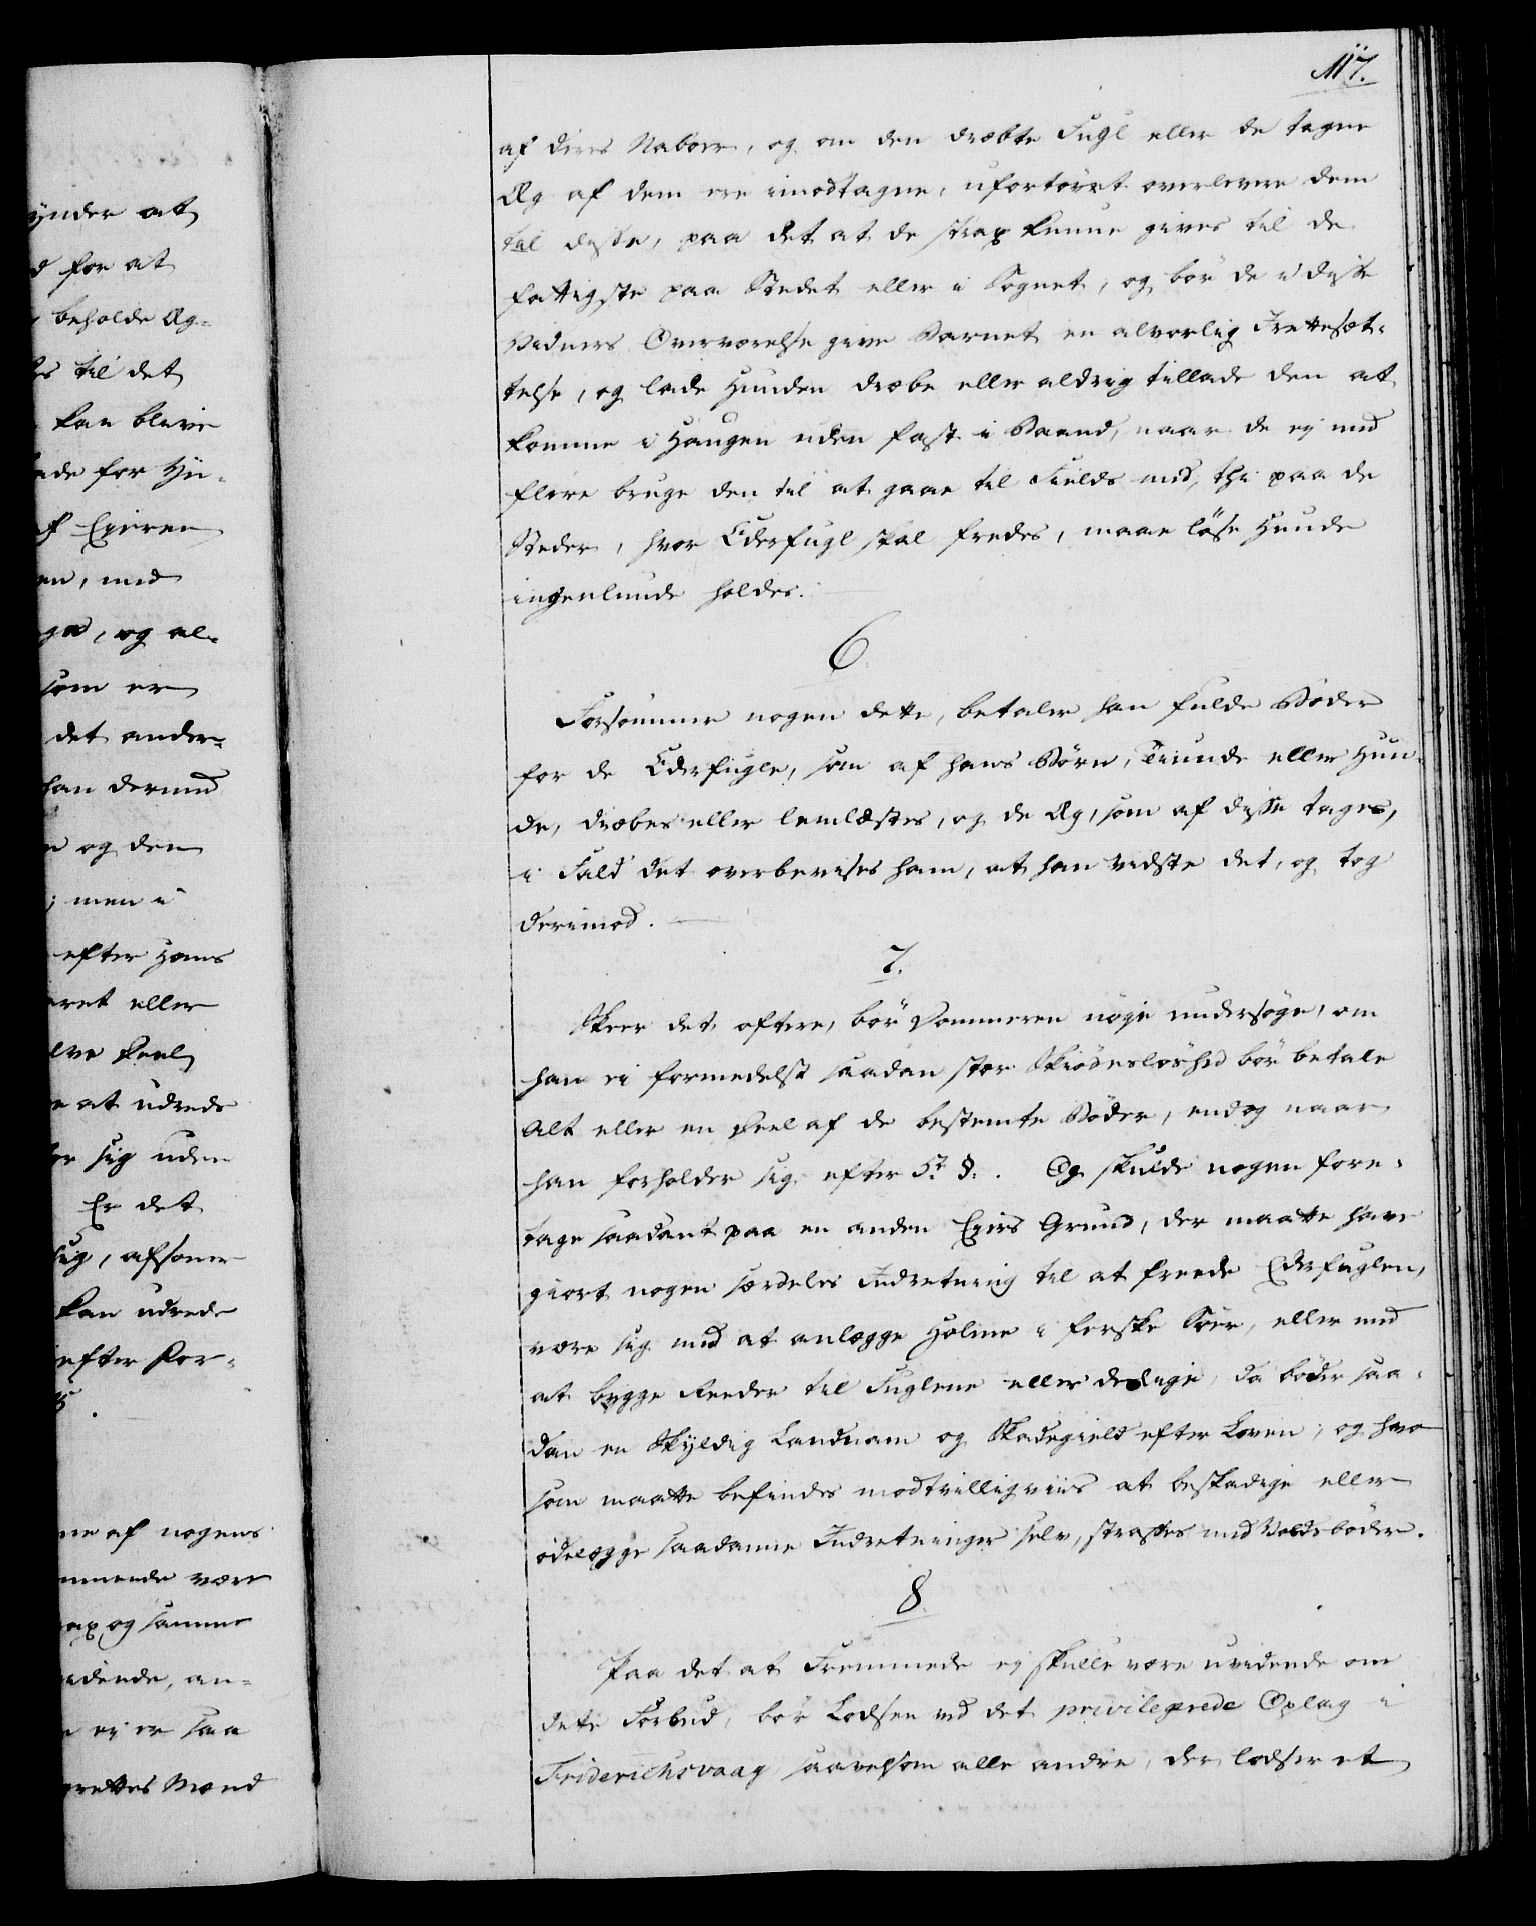 117.
af deres Naboer, og om den dræbte Fugl eller de tagne
Æg af dem ere imodtagne, ufortøvet overlevere dem
til disse, paa det at de strax kunne gives til de
fattigste paa Stedet eller i Sognet, og bør de i disse
Vidners Overværelse give Barnet en alvorlig Irettesæt-
telse, og lade Hunden dræbe eller aldrig tillade den at
komme i Haugen uden fast i Baand, naar de ej med
flere bruge den til at gaae til Fields med, thi paa de
Steder, hvor Ederfugl skal fredes, maae løse Hunde
ingenlunde holdes.
6
Forsømmer nogen dette, betaler han fulde Bøder
for de Ederfugle, som af hans Børn, Tiunde eller Hun-
de, dræbes eller lemlæstes, og de Æg, som af disse tages,
i Fald det overbevises ham, at han vidste det, og tog
derimod.
7.
Skeer det oftere, bør Dommeren nøje undersøge, om
han ei formedelst saadan stor Skiødesløshed bør betale
Alt eller en Deel af de bestemte Bøder, endog naar
han forholder sig efter 5t. §. Og skulde nogen fore-
tage saadant paa en anden Eyers Grund, der maatte have
giort nogen særdeles Indretning til at freede Ederfuglen,
være sig med at anlægge Holme i ferske Søer, eller med
at bygge Reeder til Fuglene eller deslige, da bøder saa-
dan en Skyldig Landnam og Skadegield efter Loven; og hvo
som maatte befindes modtvilligviis at beskadige eller
ødelægge saadanne Indretninger selv, straffes med Voldsbøder.
8
Paa det at Fremmede ej skulle være uvidende om
dette Forbud, bør Lodsen ved det privilegerede Oplag i
Friderichsvaag saavelsom alle andre, der lodser et
ynder at
d for at
beholde Æg-
es til det
kan blive
ade for Hu-
f Eyeren
en, med
ge, og al-
som er
det ander-
han dermed
og den
; men i
efter Hans
eret eller
lve Deel
e at udrede
or sig uden
Er det
sig, afsoner
kan udrede
efter For-
ne af nogens
mmende være
rax og samme
idende, an-
ej er saa
rettes Mænd